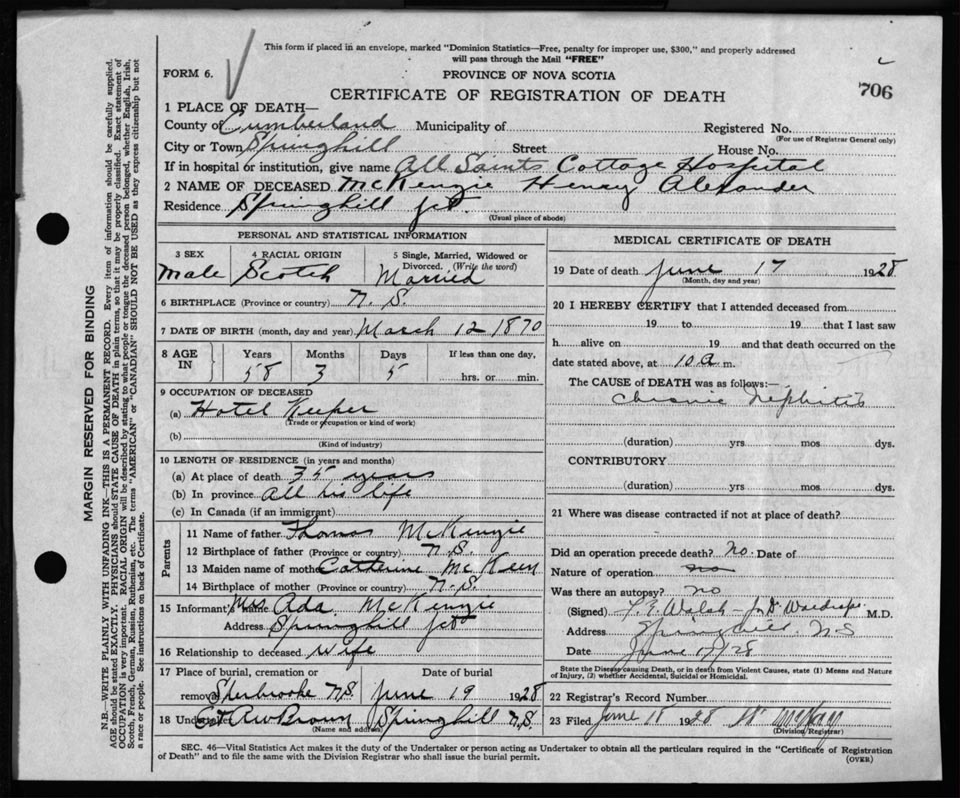 This form if placed in an envelope, marked "Dominion Statistics—Free, penalty for improper use, $300," and properly addressed
will pass through the Mail "FREE"
FORM 6.
PROVINCE OF NOVA SCOTIA
706
CERTIFICATE OF REGISTRATION OF DEATH
1 PLACE OF DEATH—
County of Cumberland Municipality of Registered No.
(For use of Registrar General only)
City or Town Springhill Street House No.
If in hospital or institution, give name All Saints Cottage Hospital
2 NAME OF DECEASED McKenzie Henry Alexander
Residence Springhill Jct.
(Usual place of abode)
PERSONAL AND STATISTICAL INFORMATION
3 SEX 4 RACIAL ORIGIN 5 Single, Married, Widowed or
Divorced. (Write the word)
Male Scotch Married
6 BIRTHPLACE (Province or country) N.S.
7 DATE OF BIRTH (month, day and year) March 12 1870
8 AGE IN Years Months Days If less than one day,
58 3 5 hrs. or min.
9 OCCUPATION OF DECEASED
(a) Hotel Keeper
(Trade or occupation or kind of work)
(b)
(Kind of industry)
10 LENGTH OF RESIDENCE (in years and months)
(a) At place of death 35 years
(b) In province All his life
(c) In Canada (if an immigrant)
Parents
11 Name of father Thomas McKenzie
12 Birthplace of father (Province or country) N.S.
13 Maiden name of mother Catherine McKeen
14 Birthplace of mother (Province or country) N.S.
15 Informant's name Mrs Ada McKenzie
Address Springhill Jct
16 Relationship to deceased Wife
17 Place of burial, cremation or Date of burial
removal Sherbrooke N.S. June 19 1928
18 Undertaker A W Brown Springhill N.S.
(Name and address)
MEDICAL CERTIFICATE OF DEATH
19 Date of death June 17 1928
(Month, day and year)
20 I HEREBY CERTIFY that I attended deceased from
19 to 19 that I last saw
h alive on 19 and that death occurred on the
date stated above, at 10 a m.
The CAUSE of DEATH was as follows:—
Chronic Nephritis
(duration) yrs mos dys.
CONTRIBUTORY
(duration) yrs. mos. dys.
21 Where was disease contracted if not at place of death?
Did an operation precede death? No. Date of
Nature of operation no
Was there an autopsy? no
(Signed) Walsh M.D.
Address Springhill. NS
Date June 17/28
State the Disease causing Death, or in death from Violent Causes, state (1) Means and Nature
of Injury, (2) whether Accidental, Suicidal or Homicidal.
22 Registrar's Record Number
23 Filed June 18 1928
(Division Registrar)
SEC. 46—Vital Statistics Act makes it the duty of the Undertaker or person acting as Undertaker to obtain all the particulars required in the "Certificate of Registration
of Death" and to file the same with the Division Registrar who shall issue the burial permit.
(OVER)
MARGIN RESERVED FOR BINDING
N.B.—WRITE PLAINLY WITH UNFADING INK—THIS IS A PERMANENT RECORD. Every item of information should be carefully supplied.
AGE should be stated EXACTLY. PHYSICIANS should STATE CAUSE OF DEATH in plain terms, so that it may be properly classified. Exact statement of
OCCUPATION is very important. RACIAL ORIGIN will be described by stating to what people or tongue the deceased person belonged, whether English, Irish,
Scotch, French, German, Russian, Ruthenian, etc. The terms "AMERICAN" or "CANADIAN" SHOULD NOT BE USED as they express citizenship but not
a race or people. See instructions on back of Certificate.